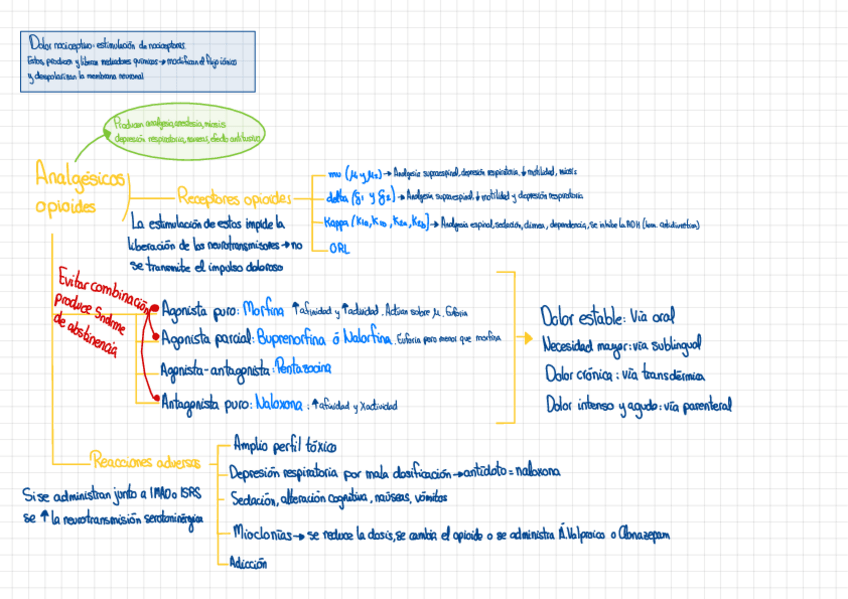 Dolor nociceptivo: estimulación de nociceptores.
Estos, producen y liberan mediadores químicos → modifican el flujo iónico
y despolarizan la membrana neuronal
Producen analgesia, anestesia, miosis
depresión respiratoria, náuseas, efecto antitusivo
Analgésicos
opioides
Receptores opioides
mu (μ1 y μ2) → Analgesia supraespinal, depresión respiratoria, ↓ motilidad, miosis
delta (δ1 y δ2) → Analgesia supraespinal ↓ motilidad y depresión respiratoria
Kappa (K1a, K1b, K2a, K2b) → Analgesia espinal, sedación, disnea, dependencia, se inhibe la ADH (horm. antidiurética)
ORL
La estimulación de estos impide la
liberación de los neurotransmisores → no
se transmite el impulso doloroso
Evitar combinación
produce Síndrme
de abstinencia
Agonista puro: Morfina ↑ afinidad y ↑ actividad. Actúan sobre μ. Euforia
Agonista parcial: Buprenorfina ó Nalorfina. Euforia pero menor que morfina
Agonista-antagonista: Pentazocina
Antagonista puro: Naloxona: ↑ afinidad y X actividad
Dolor estable: Vía oral
Necesidad mayor: vía sublingual
Dolor crónica: vía transdérmica
Dolor intenso y agudo: vía parenteral
Reacciones adversas
Amplio perfil tóxico
Depresión respiratoria por mala dosificación → antídoto = naloxona
Sedación, alteración cognitiva, náuseas, vómitos
Mioclonías → se reduce la dosis, se cambia el opioide o se administra Á. Valproico o Clonazepam
Adicción
Si se administran junto a IMAO o ISRS
se ↑ la neurotransmisión serotoninérgica